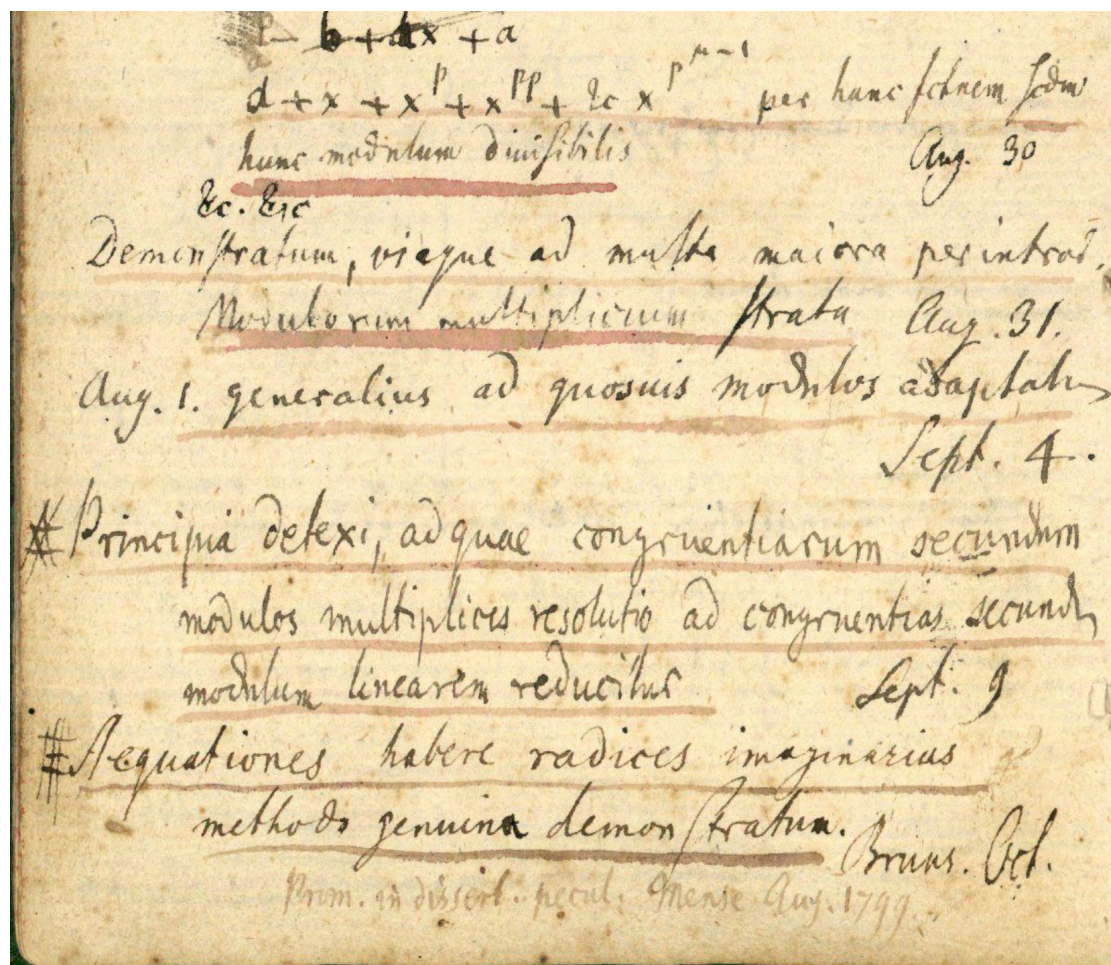 b + dx + a
a + x + x^p + x^pp + &c x^p^m-1 per hanc fctnem scdm
hunc modulum divisibilis Aug. 30
&c. &c
Demonstratum, viaque ad multa maiora per introd.
Modulorum multiplicium strata Aug. 31.
Aug. 1. generalius ad quosuis modulos adaptatum
Sept. 4.
Principia detexi, ad quae congruentiarum secundum
modulos multiplices resolutio ad congruentias secundum
modulum linearem reducitur Sept. 9
Aequationes habere radices imaginarias
methodo genuina demonstratum. Bruns. Oct.
Prom. in dissert. pecul. Mense Aug. 1799.